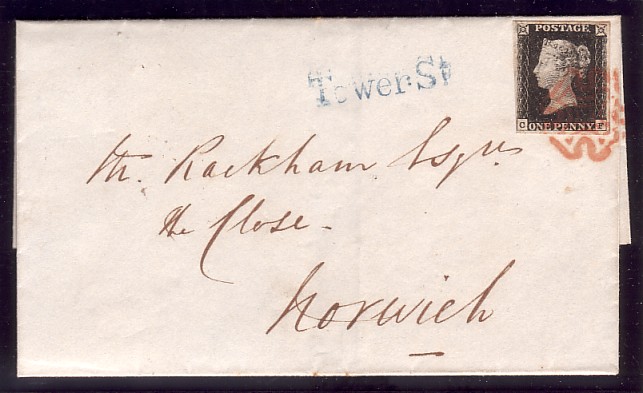 POSTAGE
C F
ONE PENNY
Tower St
M. Rackham Esqre
the Close
Norwich